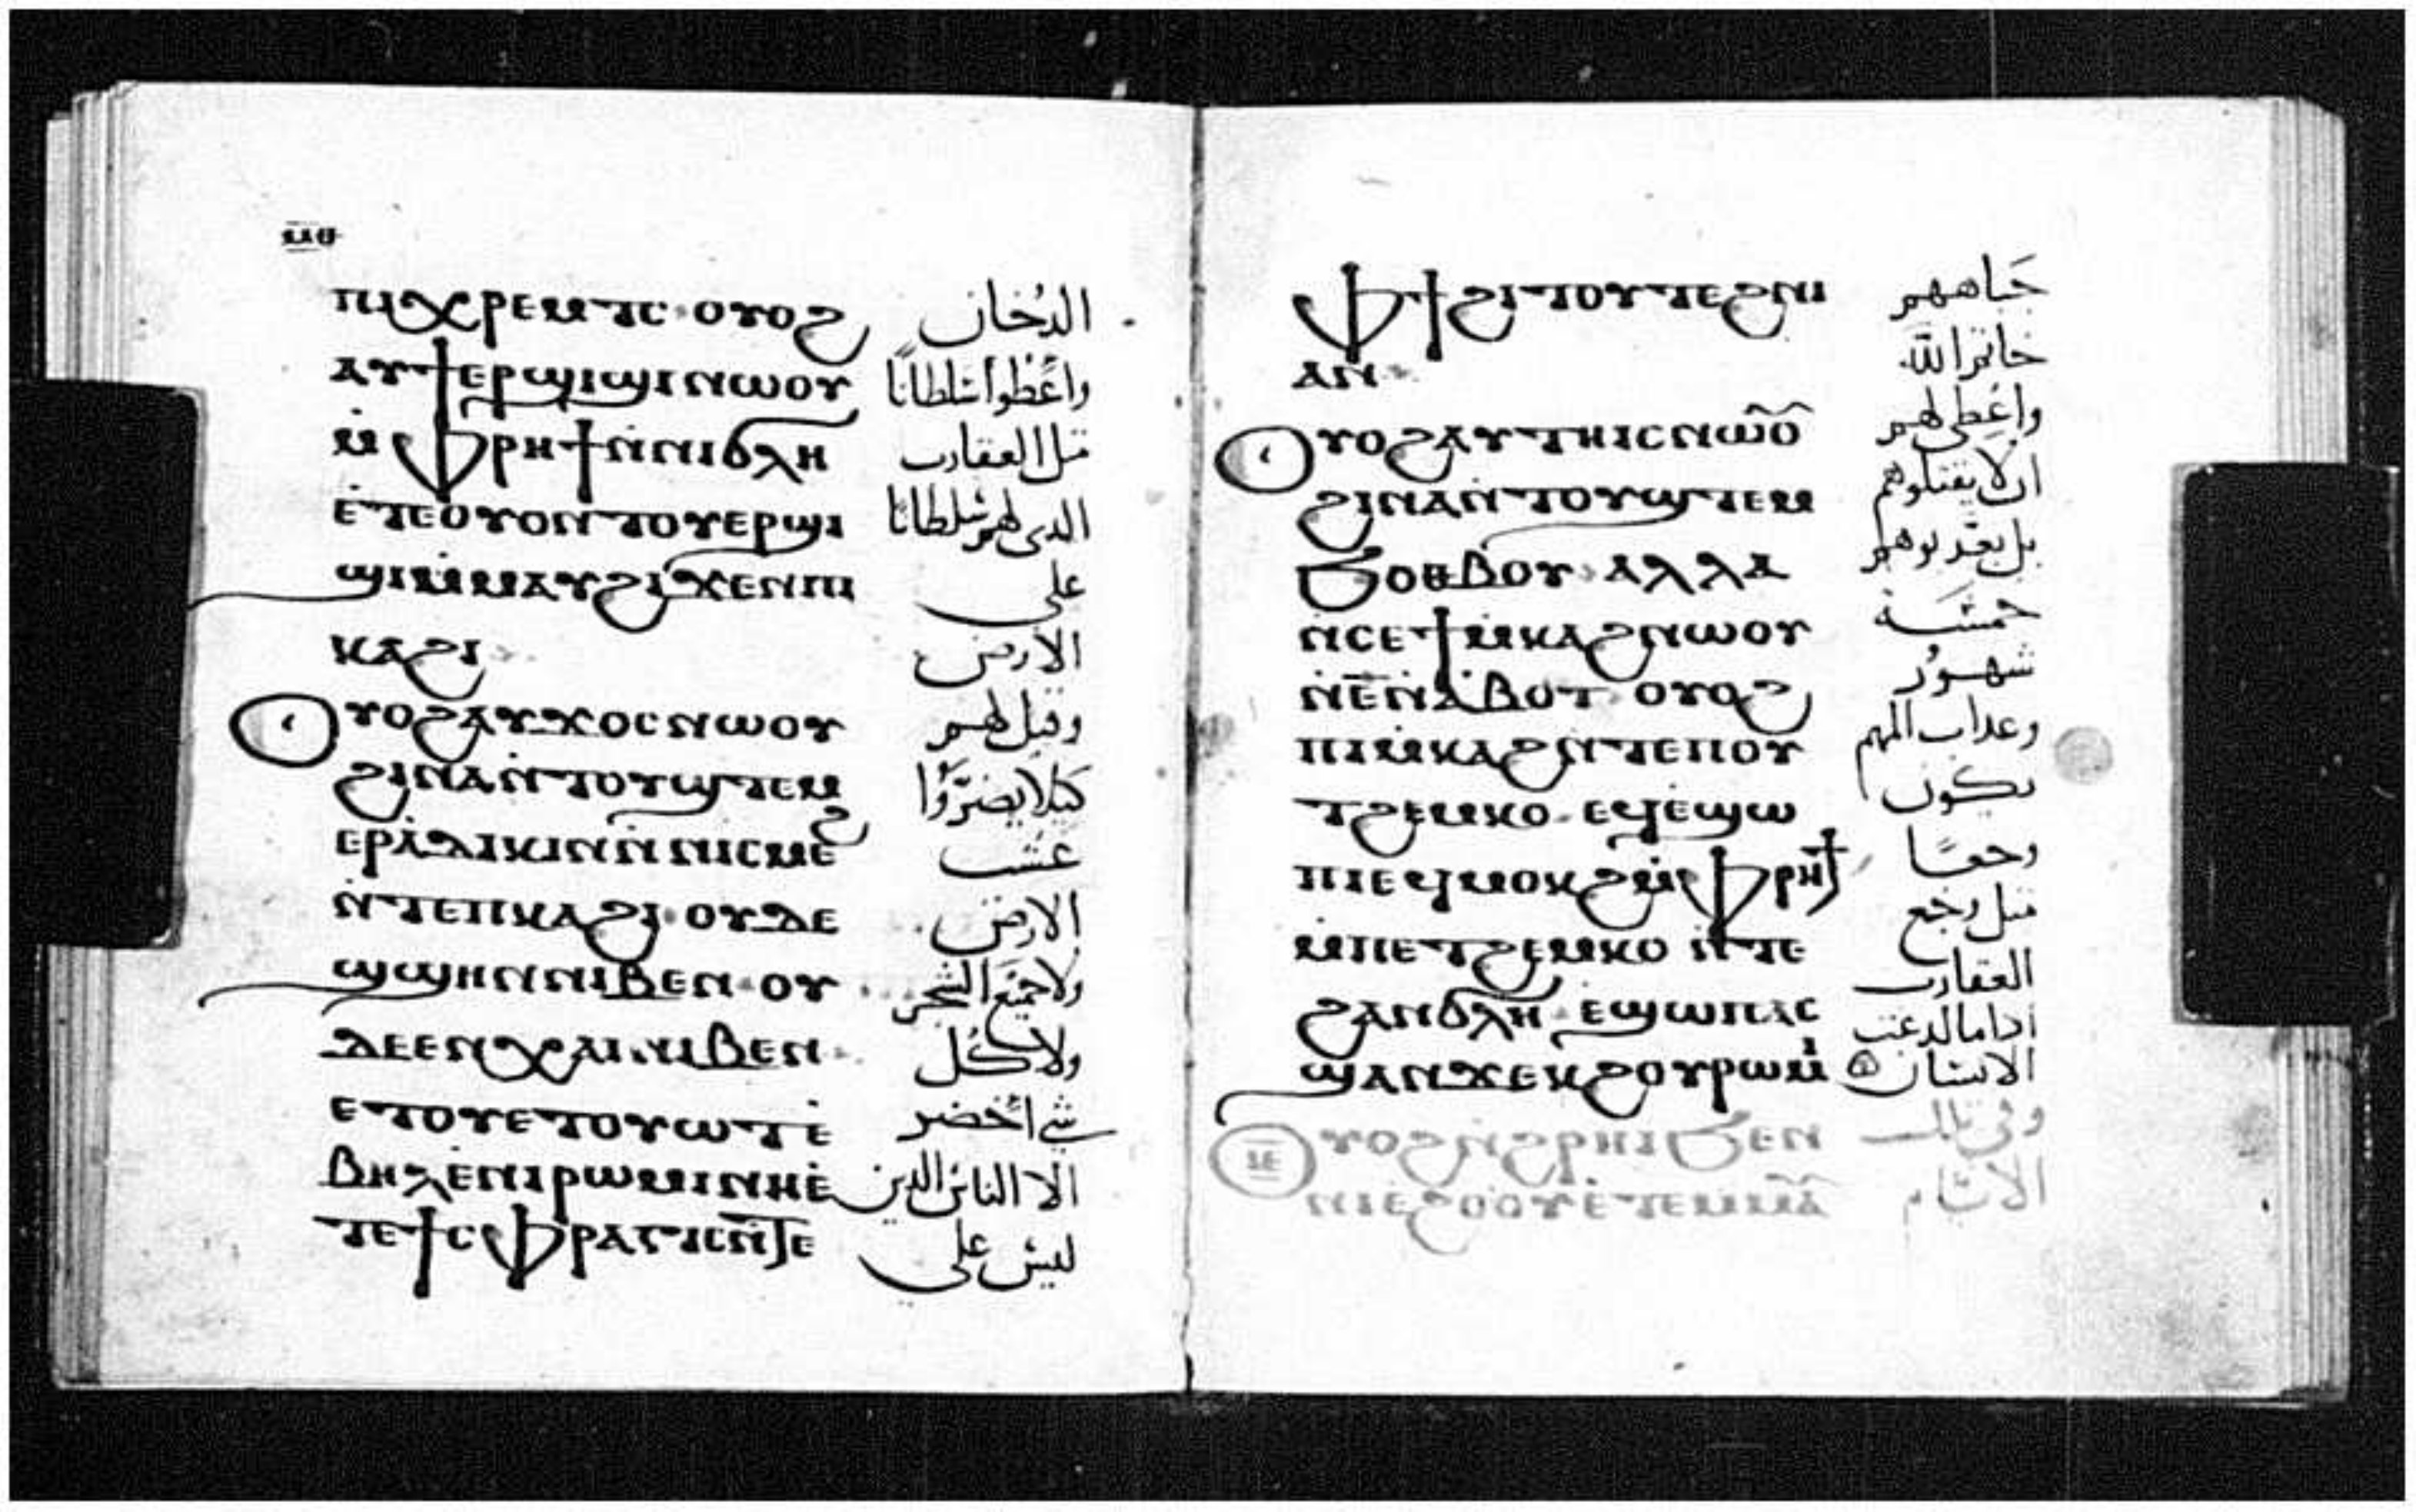 ⲙⲑ
ⲡⲓⲭⲣⲉⲙⲧⲥ ⲟⲩⲟϩ الدُخان
ⲁⲩϯⲉⲣϣⲓϣⲓⲛⲱⲟⲩ واعْطوا سُلطانًا
ⲙ̀ⲫⲣⲏϯⲛ̀ⲛⲓϭⲗⲏ متل العقارب
ⲉ̀ⲧⲉⲟⲩⲟⲛⲧⲟⲩⲉⲣϣⲓ الدى لهم سُلطانا
ϣⲓⲙ̀ⲙⲁⲩϩⲓϫⲉⲛⲡⲓ على
ⲕⲁϩⲓ الارض
ⲟⲩⲟϩⲁⲩϫⲟⲥⲛⲱⲟⲩ وقيل لهم
ϩⲓⲛⲁⲛ̀ⲧⲟⲩϣⲧⲉⲙ كيلا يضرّوا
ⲉⲣⲁ̀ⲇⲓⲕⲓⲛⲛ̀ⲛⲓⲥⲙⲉϩ عشب
ⲛ̀ⲧⲉⲡⲕⲁϩⲓ ⲟⲩⲇⲉ الارض
ϣϣⲏⲛⲛⲓⲃⲉⲛ ⲟⲩ ولا جميع الشجر
ⲇⲉⲉⲛⲭⲁⲓⲛⲓⲃⲉⲛ ولا كُل
ⲉⲧⲟⲩⲉⲧⲟⲩⲱⲧⲉ̀ شي اخضر
ⲃⲏⲗⲉ̀ⲛⲓⲣⲱⲙⲓⲛⲏⲉ̀ الا الناس الدين
ⲧⲉϯⲥⲫⲣⲁⲅⲓⲥⲛ̀ⲧⲉ ليس على
ⲫϯϩⲓⲧⲟⲩⲧⲉϩⲛⲓ جَباههم
ⲁⲛ خاتم الله
ⲟⲩⲟϩⲁⲩⲧⲏⲓⲥⲛⲱⲟ واعْطى لهم
ϩⲓⲛⲁⲛ̀ⲧⲟⲩϣⲧⲉⲙ ان لا يقتلوهم
ϧⲟⲑⲃⲟⲩ ⲁⲗⲗⲁ بل يعدبوهم
ⲛ̀ⲥⲉϯⲙ̀ⲕⲁϩⲛⲱⲟⲩ خمسَة
ⲛ̀ⲉ̅ⲛ̀ⲁ̀ⲃⲟⲧ ⲟⲩⲟϩ شهور
ⲡⲓⲙ̀ⲕⲁϩⲛ̀ⲧⲉⲡⲟⲩ وعداب المهم
ⲧϩⲉⲙⲕⲟ ⲉϥⲉ̀ϣⲱ يكون
ⲡⲓⲉϥⲙⲟⲕϩⲙ̀ⲫⲣⲏϯ وجعًا
ⲙ̀ⲡⲉⲧϩⲉⲙⲕⲟ ⲛ̀ⲧⲉ متل وجَع
ϩⲁⲛϭⲗⲏ ⲉϣⲱⲡⲁⲥ العقارب
ϣⲁⲛϫⲉⲕϩⲟⲩⲣⲱⲙⲓ ادا ما لدغت
الانسان
ⲟⲩⲟϩⲛ̀ϩⲣⲏⲓϧⲉⲛ وفي تلك
ⲓⲉ ⲛⲓⲉϩⲟⲟⲩⲉ̀ⲧⲉⲙ̀ⲙⲁ الايام